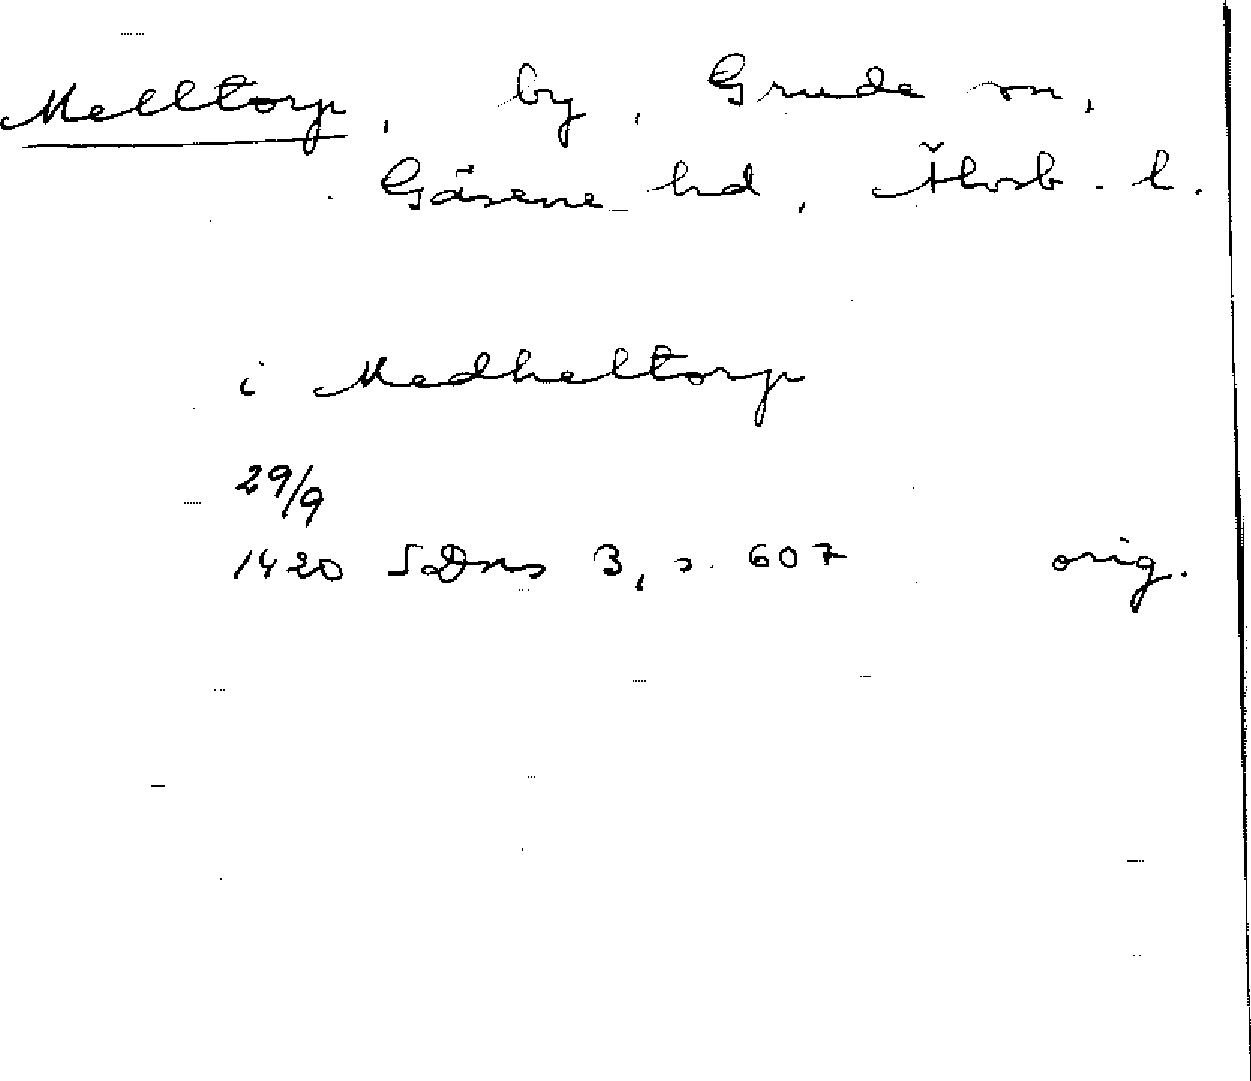 Melltorp, by, Grude sn,
Gäsene hd, Älvsb. l.
i Medheltorp
29/9
1420 SDns 3, s. 607 orig.